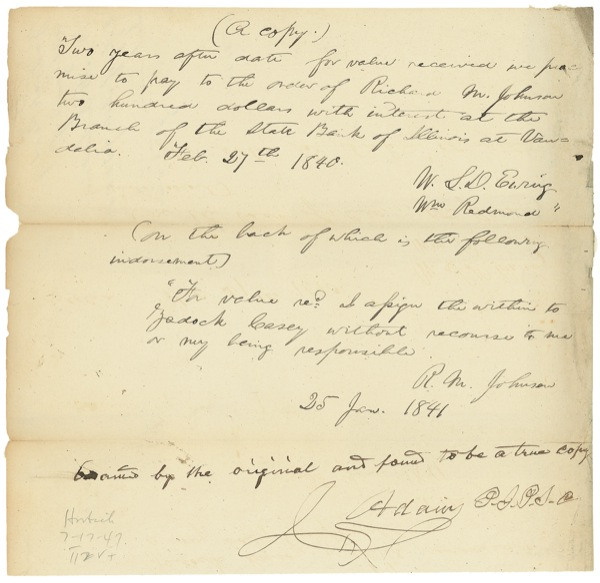 (A copy.)
"Two years after date for value received we pro-
mise to pay to the order of Richard M. Johnson
two hundred dollars with interest at the
Branch of the State Bank of Illinois at Van-
dalia. Feb. 27th 1840.
W. L. D. Ewing
Wm Redmond"
(on the back of which is the following
indorsement)
"For value recd. I assign the within to
Zadock Casey without recourse to me
or my being responsible.
R. M. Johnson
25 Jan. 1841
by the original and found to be a true copy
J. Adams
7-17-47